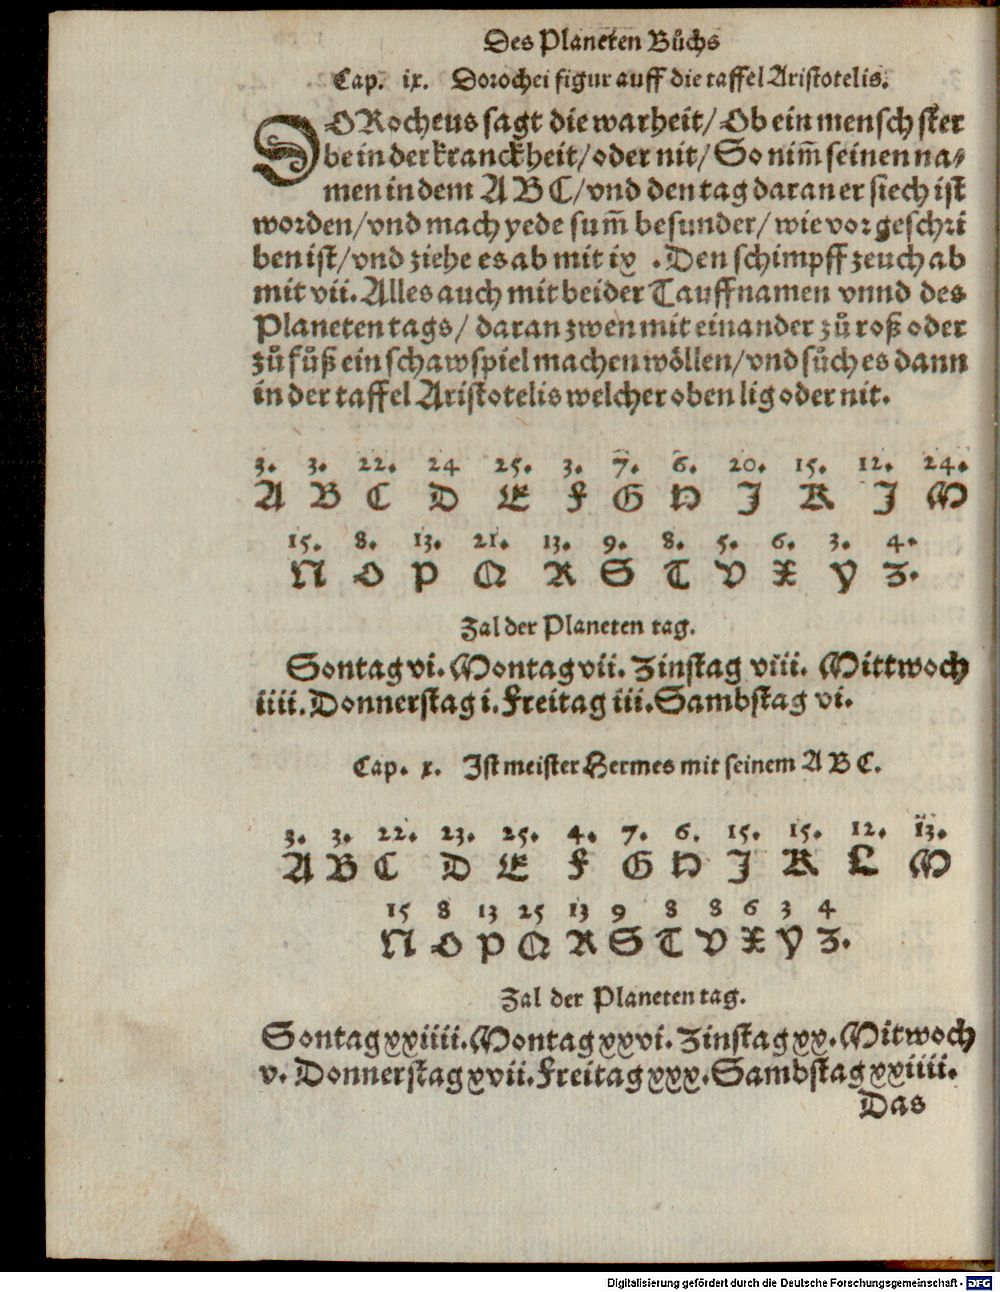 Des Planeten Bůchs
Cap. ix. Dorochei figur auff die taffel Aristotelis.
DORocheus sagt die warheit/ Ob ein mensch ster
be in der kranckheit/ oder nit/ So nim̃ seinen na⸗
men in dem A B C/ vnd den tag daran er siech ist
worden/ vnd mach yede sum̃ besunder/ wie vor geschri
ben ist/ vnd ziehe es ab mit ix . Den schimpff zeuch ab
mit vii. Alles auch mit beider Tauffnamen vnnd des
Planeten tags/ daran zwen mit einander zů roß oder
zů fůß ein schawspiel machen wöllen/ vnd sůch es dann
in der taffel Aristotelis welcher oben lig oder nit.
3. 3. 22. 24 25. 3. 7. 6. 20. 15. 12. 24.
A B C D E F G H J K J M
15. 8. 13. 21. 13. 9. 8. 5. 6. 3. 4.
N O P Q R S T V X Y Z.
Zal der Planeten tag.
Sontag vi. Montag vii. Zinstag viii. Mittwoch
iiii. Donnerstag i. Freitag iii. Sambstag vi.
Cap. x. Ist meister Hermes mit seinem A B C.
3. 3. 22. 23. 25. 4. 7. 6. 15. 15. 12. 13.
A B C D E F G H J K L M
15 8 13 25 13 9 8 8 6 3 4
N O P Q R S T V X Y Z.
Zal der Planeten tag.
Sontag xxiiii. Montag xxvi. Zinstag xx. Mitwoch
v. Donnerstag xvii. Freitag xxx. Sambstag xxiiii.
Das
Digitalisierung gefördert durch die Deutsche Forschungsgemeinschaft - DFG